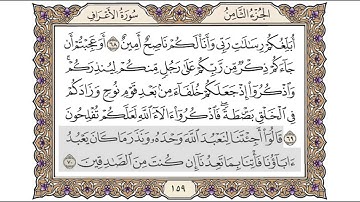 الجزء الثامن
سورة الأعراف
أُبَلِّغُكُمْ رِسَٰلَٰتِ رَبِّى وَأَنَا۠ لَكُمْ نَاصِحٌ أَمِينٌ ٦٨ أَوَعَجِبْتُمْ أَن
جَآءَكُمْ ذِكْرٌ مِّن رَّبِّكُمْ عَلَىٰ رَجُلٍ مِّنكُمْ لِيُنذِرَكُمْ ۚ
وَٱذْكُرُوٓا۟ إِذْ جَعَلَكُمْ خُلَفَآءَ مِنۢ بَعْدِ قَوْمِ نُوحٍ وَزَادَكُمْ
فِى ٱلْخَلْقِ بَصْۜطَةً ۖ فَٱذْكُرُوٓا۟ ءَالَآءَ ٱللَّهِ لَعَلَّكُمْ تُفْلِحُونَ
٦٩ قَالُوٓا۟ أَجِئْتَنَا لِنَعْبُدَ ٱللَّهَ وَحْدَهُۥ وَنَذَرَ مَا كَانَ يَعْبُدُ
ءَابَآؤُنَا ۖ فَأْتِنَا بِمَا تَعِدُنَآ إِن كُنتَ مِنَ ٱلصَّٰدِقِينَ ٧٠
١٥٩